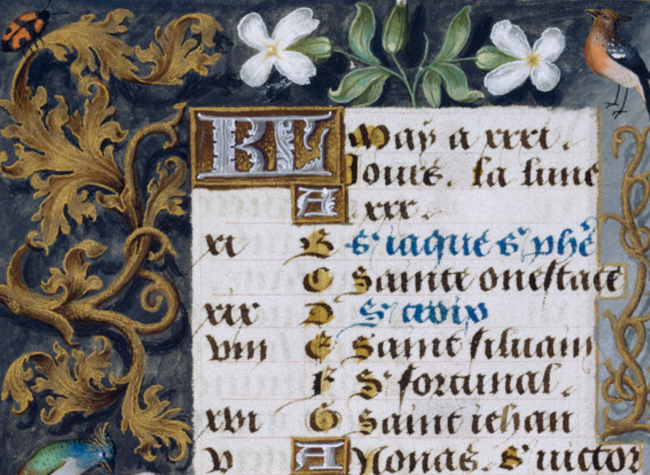 KL May a xxxi.
Jours. la lune
A xxx.
xi B S iaque S phe
C Sainte onestace
xix D S croix
viii E Saint siluain
F S fortunal.
xvi G Saint iehan
v A Nonas. S victor